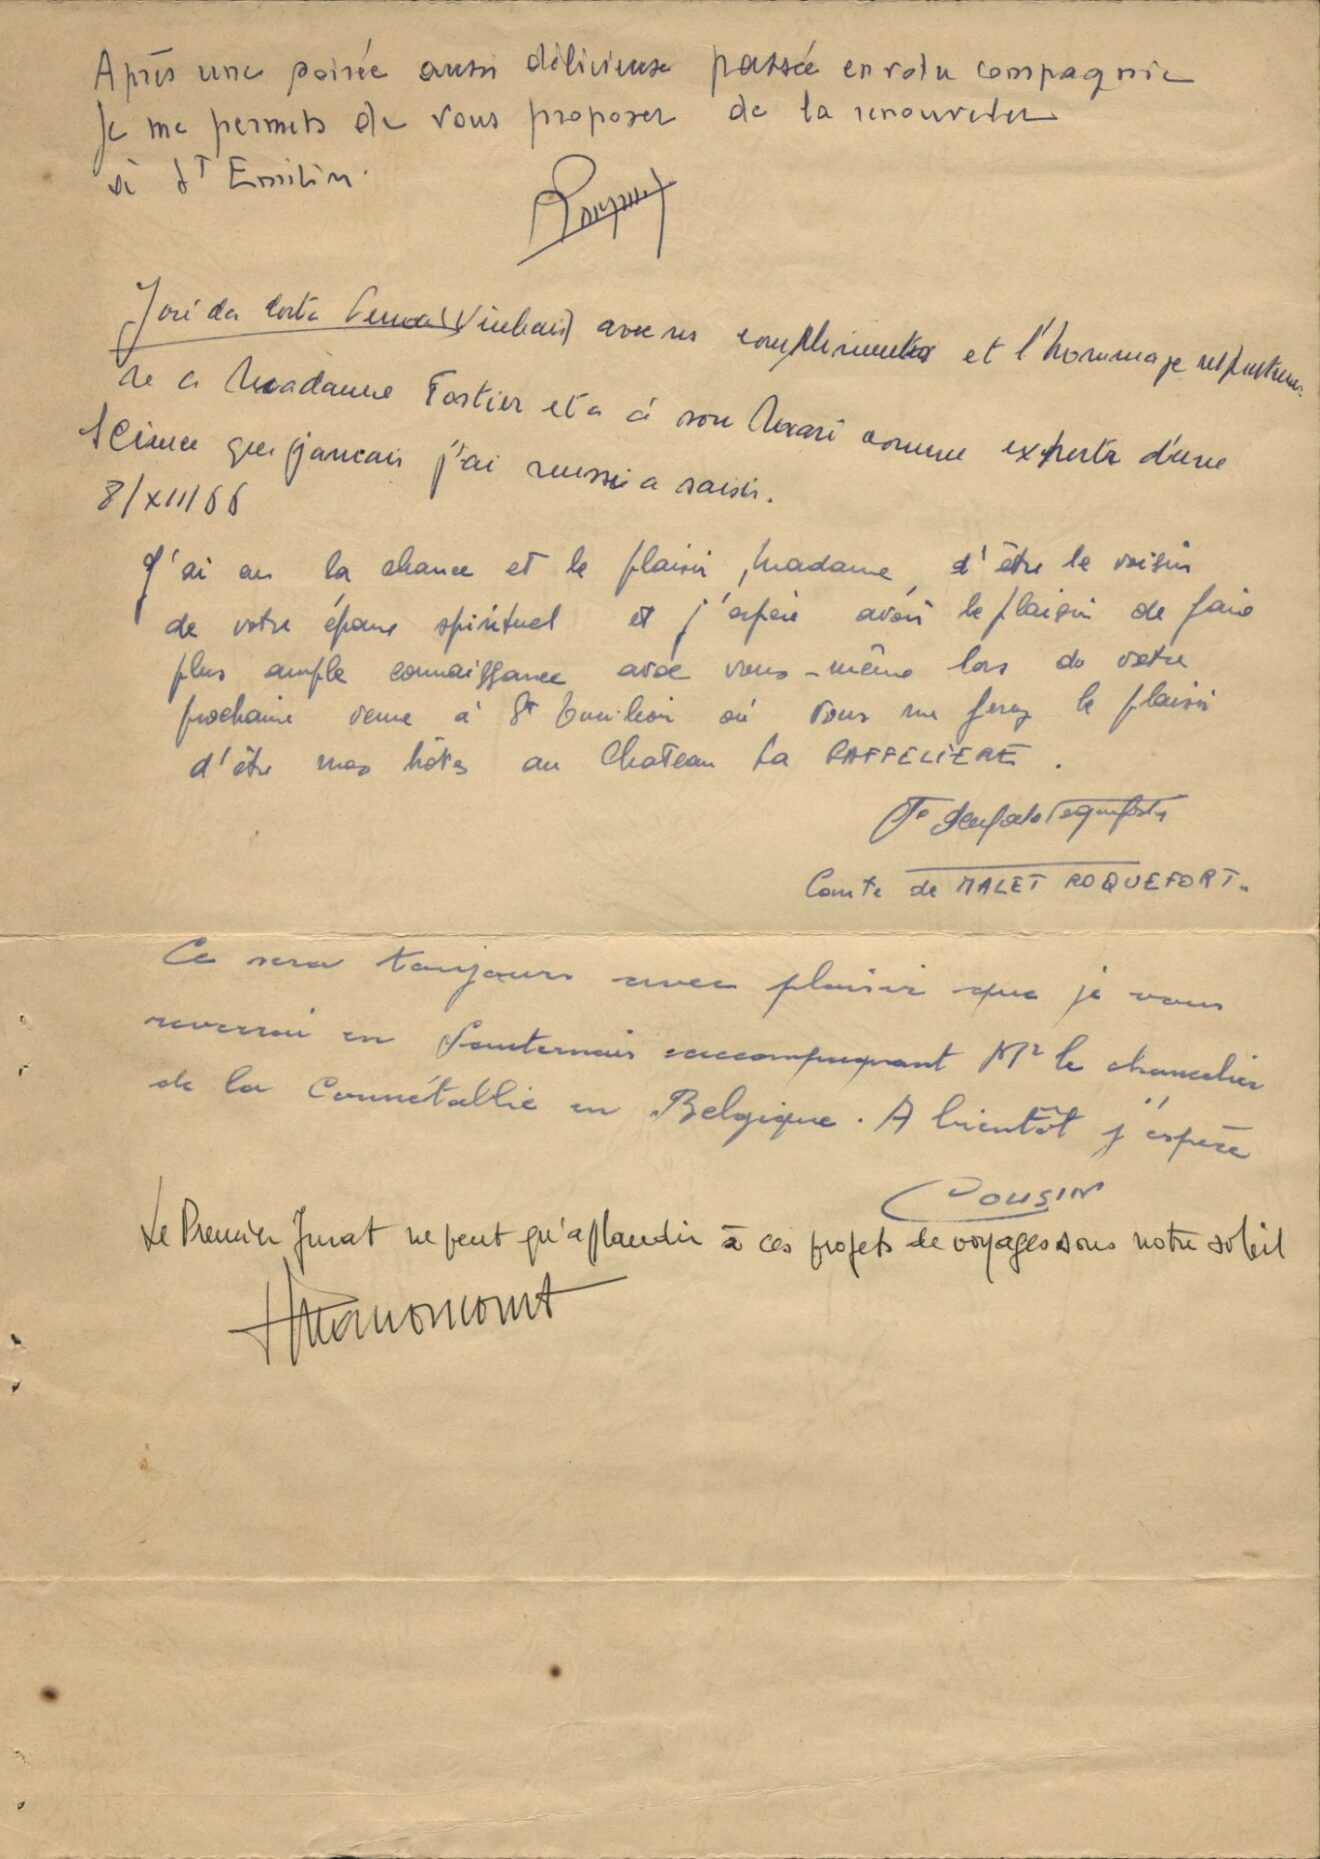 Après une soirée aussi délicieuse passée en votre compagnie
Je me permets de vous proposer de la renouveler
à St Emilion.
José da Costa (Vinhais) avec ses compliments et l'hommage respectueux
à Madame Fostier et a à son Mari comme experts d'une
science que jamais j'ai reussi a saisir.
8/XII/66
J'ai eu la chance et le plaisir, Madame, d'être le voisin
de votre époux spirituel et j'espère avoir le plaisir de faire
plus ample connaissance avec vous-même lors de votre
prochaine venue à St Emilion où vous me ferez le plaisir
d'être mes hôtes au Chateau La GAFFELIERE.
Comte de MALET ROQUEFORT.
Ce sera toujours avec plaisir que je vous
reverrai en Sauternais accompagnant Mr le chancelier
de la Connétablie en Belgique. A bientôt j'espère
Cousin
Le Premier Jurat ne peut qu'aplaudir à ces projets de voyages sous notre soleil